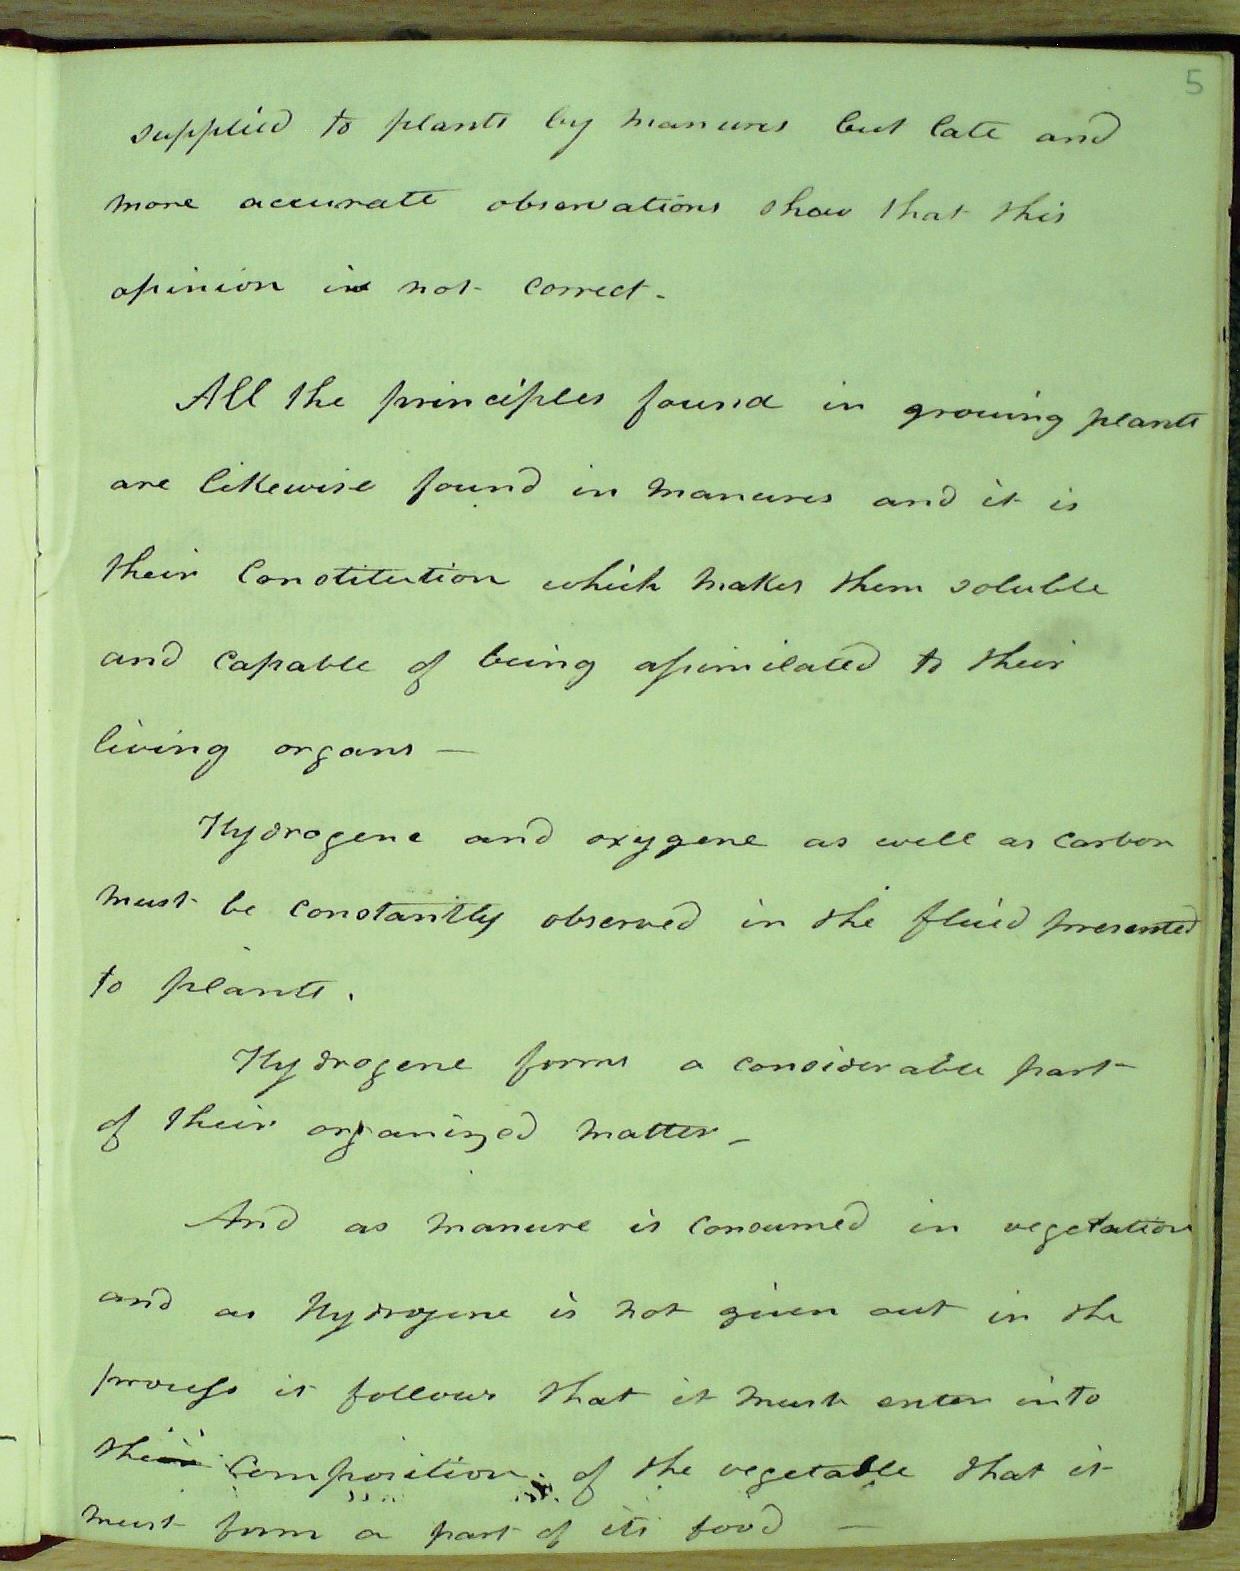 5
supplied to plants by manures but late and
more accurate observations show that this
opinion is not correct.
All the principles found in growing plants
are likewise found in manures and it is
their Constitution which makes them soluble
and capable of being assimilated to their
living organs —
Hydrogene and oxygene as well as Carbon
must be constantly observed in the fluid presented
to plants.
Hydrogene forms a considerable part
of their organized matter —
And as manure is consumed in vegetation
and as Hydrogene is not given out in the
process it follows that it must enter into
their composition of the vegetable that it
must form a part of its food —